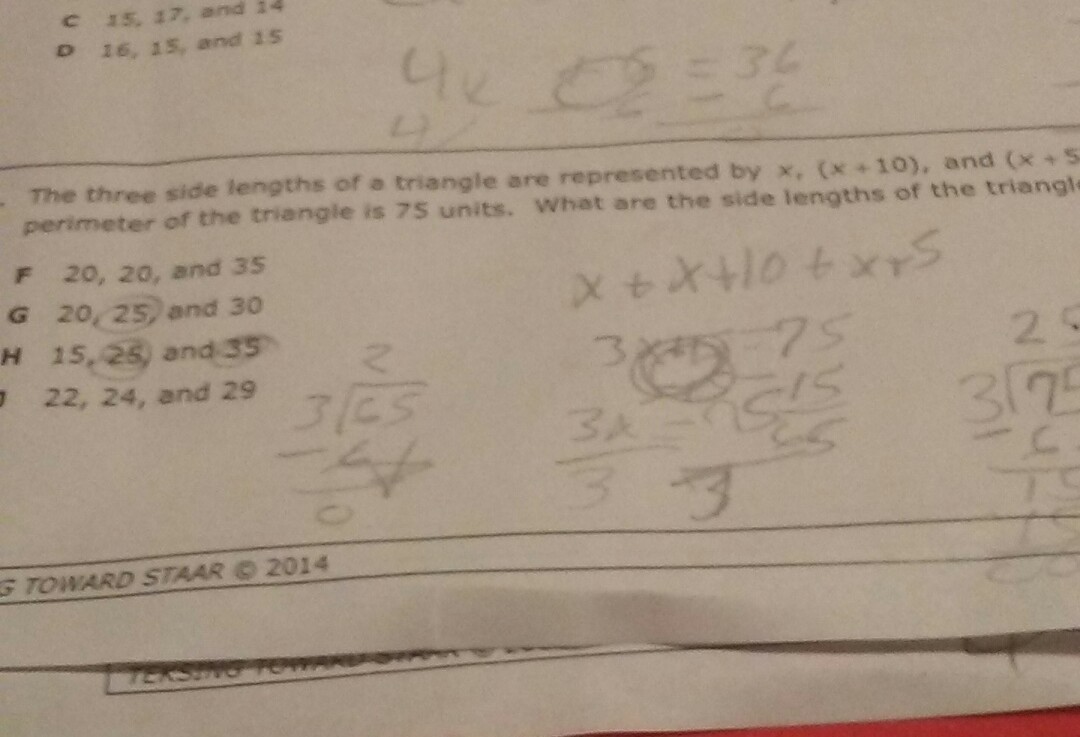 C 15, 17, and 14
D 16, 15, and 15
4x = 36
4
The three side lengths of a triangle are represented by x, (x + 10), and (x + 5
perimeter of the triangle is 75 units. What are the side lengths of the triangle
F 20, 20, and 35
G 20, 25, and 30
H 15, 25, and 35
J 22, 24, and 29
x + x+10 + x+5
3x = 75
- 15
3x = 65
3 3
2
3 65
- 6
0
25
3 75
- 6
15
15
G TOWARD STAAR © 2014
TEKSING TOWARD STAAR ©